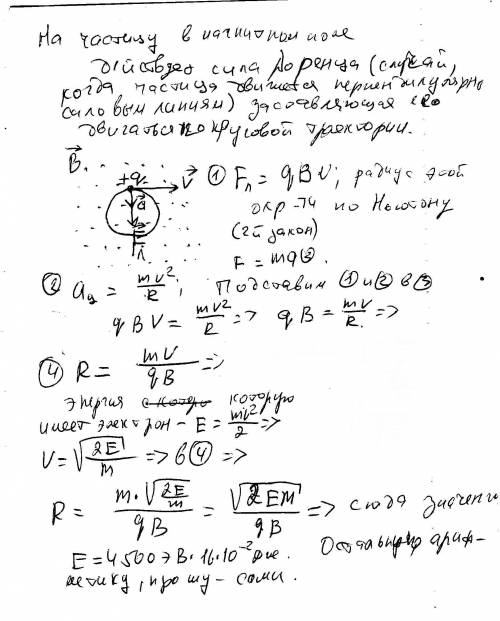 На частицу в магнитном поле
действует сила Лоренца (случай,
когда частица движется перпендикулярно
силовым линиям) заставляющая его
двигаться по круговой траектории.
B⃗ +q V⃗ ① Fл = qBV; радиус этой
a⃗ окр-ти по Ньютону
F⃗л (2й закон)
F = ma ③.
② aц = mv²/R; Подставим ① и ② в ③
qBV = mV²/R => qB = mV/R =>
④ R = mV/qB =>
Энергия которую
имеет электрон - E = mv²/2 =>
V = √(2E/m) => в ④ =>
R = m·√(2E/m)/qB = √(2Em)/qB => сюда значения
E = 4500 эВ·16·10⁻² Дж. Остальную ариф-
метику, прошу - сами.